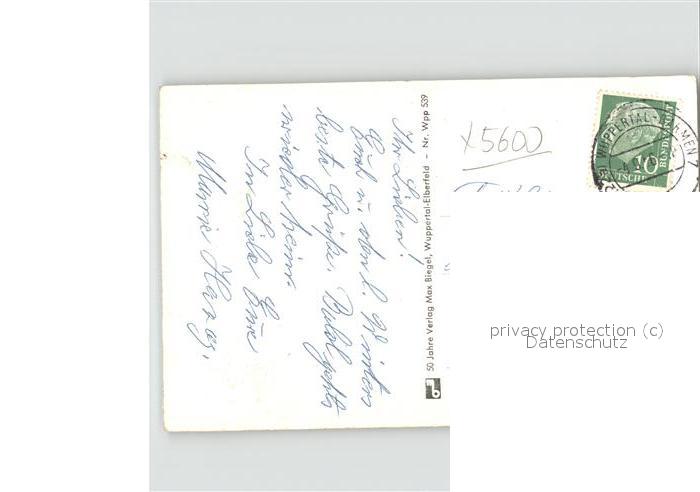 Ihr Lieben!
Euch u. den l. Winters
beste Grüße. Bald gehts
wieder heim.
In Liebe Eure
Mimie Herzog.
50 Jahre Verlag Max Biegel, Wuppertal-Elberfeld – Nr. Wpp 539
x5600
WUPPERTAL-BARMEN 7
10
DEUTSCHE
BUNDESPOST
privacy protection (c)
Datenschutz